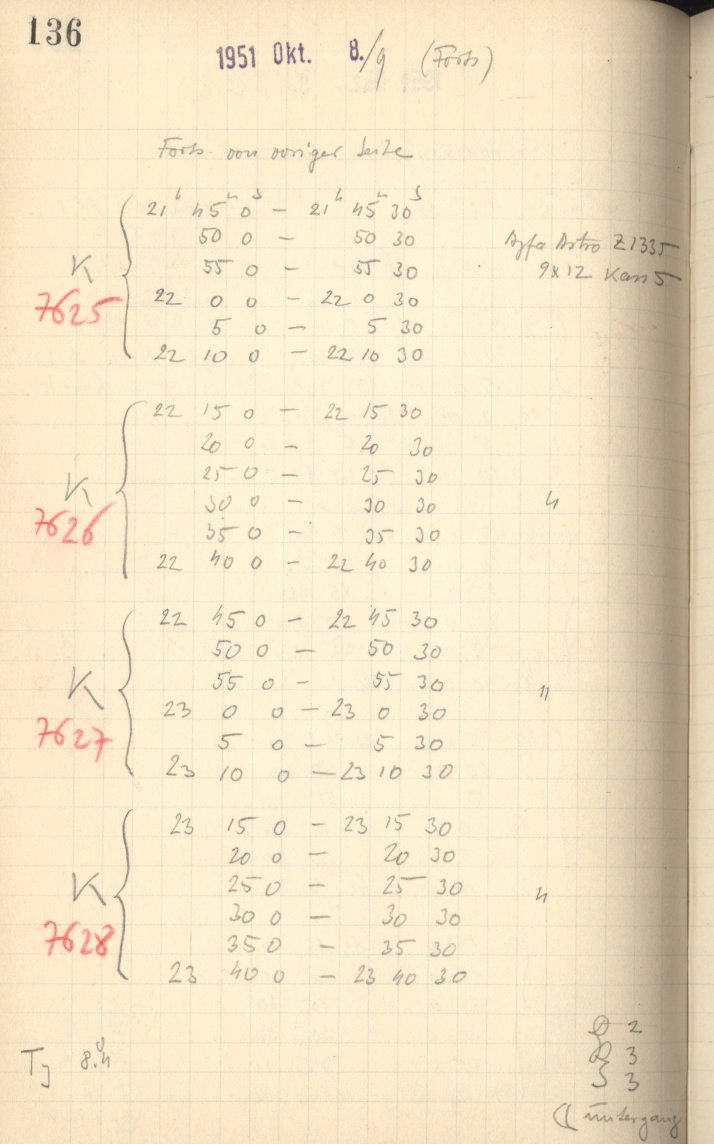 136
1951 Okt. 8./9 (Forts)
Forts. von voriger Seite
21h 45m 0s – 21h 45m 30s
50 0 – 50 30
Agfa Astro Z1335
K
55 0 – 55 30
9x12 Kass 5
7625
22 0 0 – 22 0 30
5 0 – 5 30
22 10 0 – 22 10 30
22 15 0 – 22 15 30
20 0 – 20 30
25 0 – 25 30
K
30 0 – 30 30
"
7626
35 0 – 35 30
22 40 0 – 22 40 30
22 45 0 – 22 45 30
50 0 – 50 30
K
55 0 – 55 30
"
7627
23 0 0 – 23 0 30
5 0 – 5 30
23 10 0 – 23 10 30
23 15 0 – 23 15 30
20 0 – 20 30
K
25 0 – 25 30
"
7628
30 0 – 30 30
35 0 – 35 30
23 40 0 – 23 40 30
2
3
S 3
TJ 8.°4
Untergang